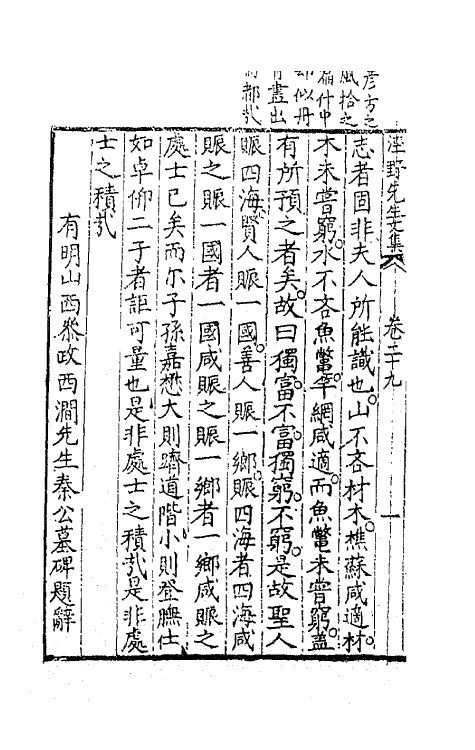 彦方之
風拾之
備什中
却似丹
青畫出
涇野先生文集 卷二十九 一
志者固非夫人所能識也山不吝材木樵蘇咸適材
木未嘗窮水不吝魚鱉竿網咸適而魚鱉未嘗窮蓋
有所預之者矣故曰獨富不富獨窮不窮是故聖人
賑四海賢人賑一國善人賑一鄉賑四海者四海咸
賑之賑一國者一國咸賑之賑一鄉者一鄉咸賑之
處士已矣而尓子孫嘉懋大則躋道階小則登膴仕
如卓仰二子者詎可量也是非處士之積㢤是非處
士之積㢤
有明山西叅政西澗先生秦公墓碑題辭